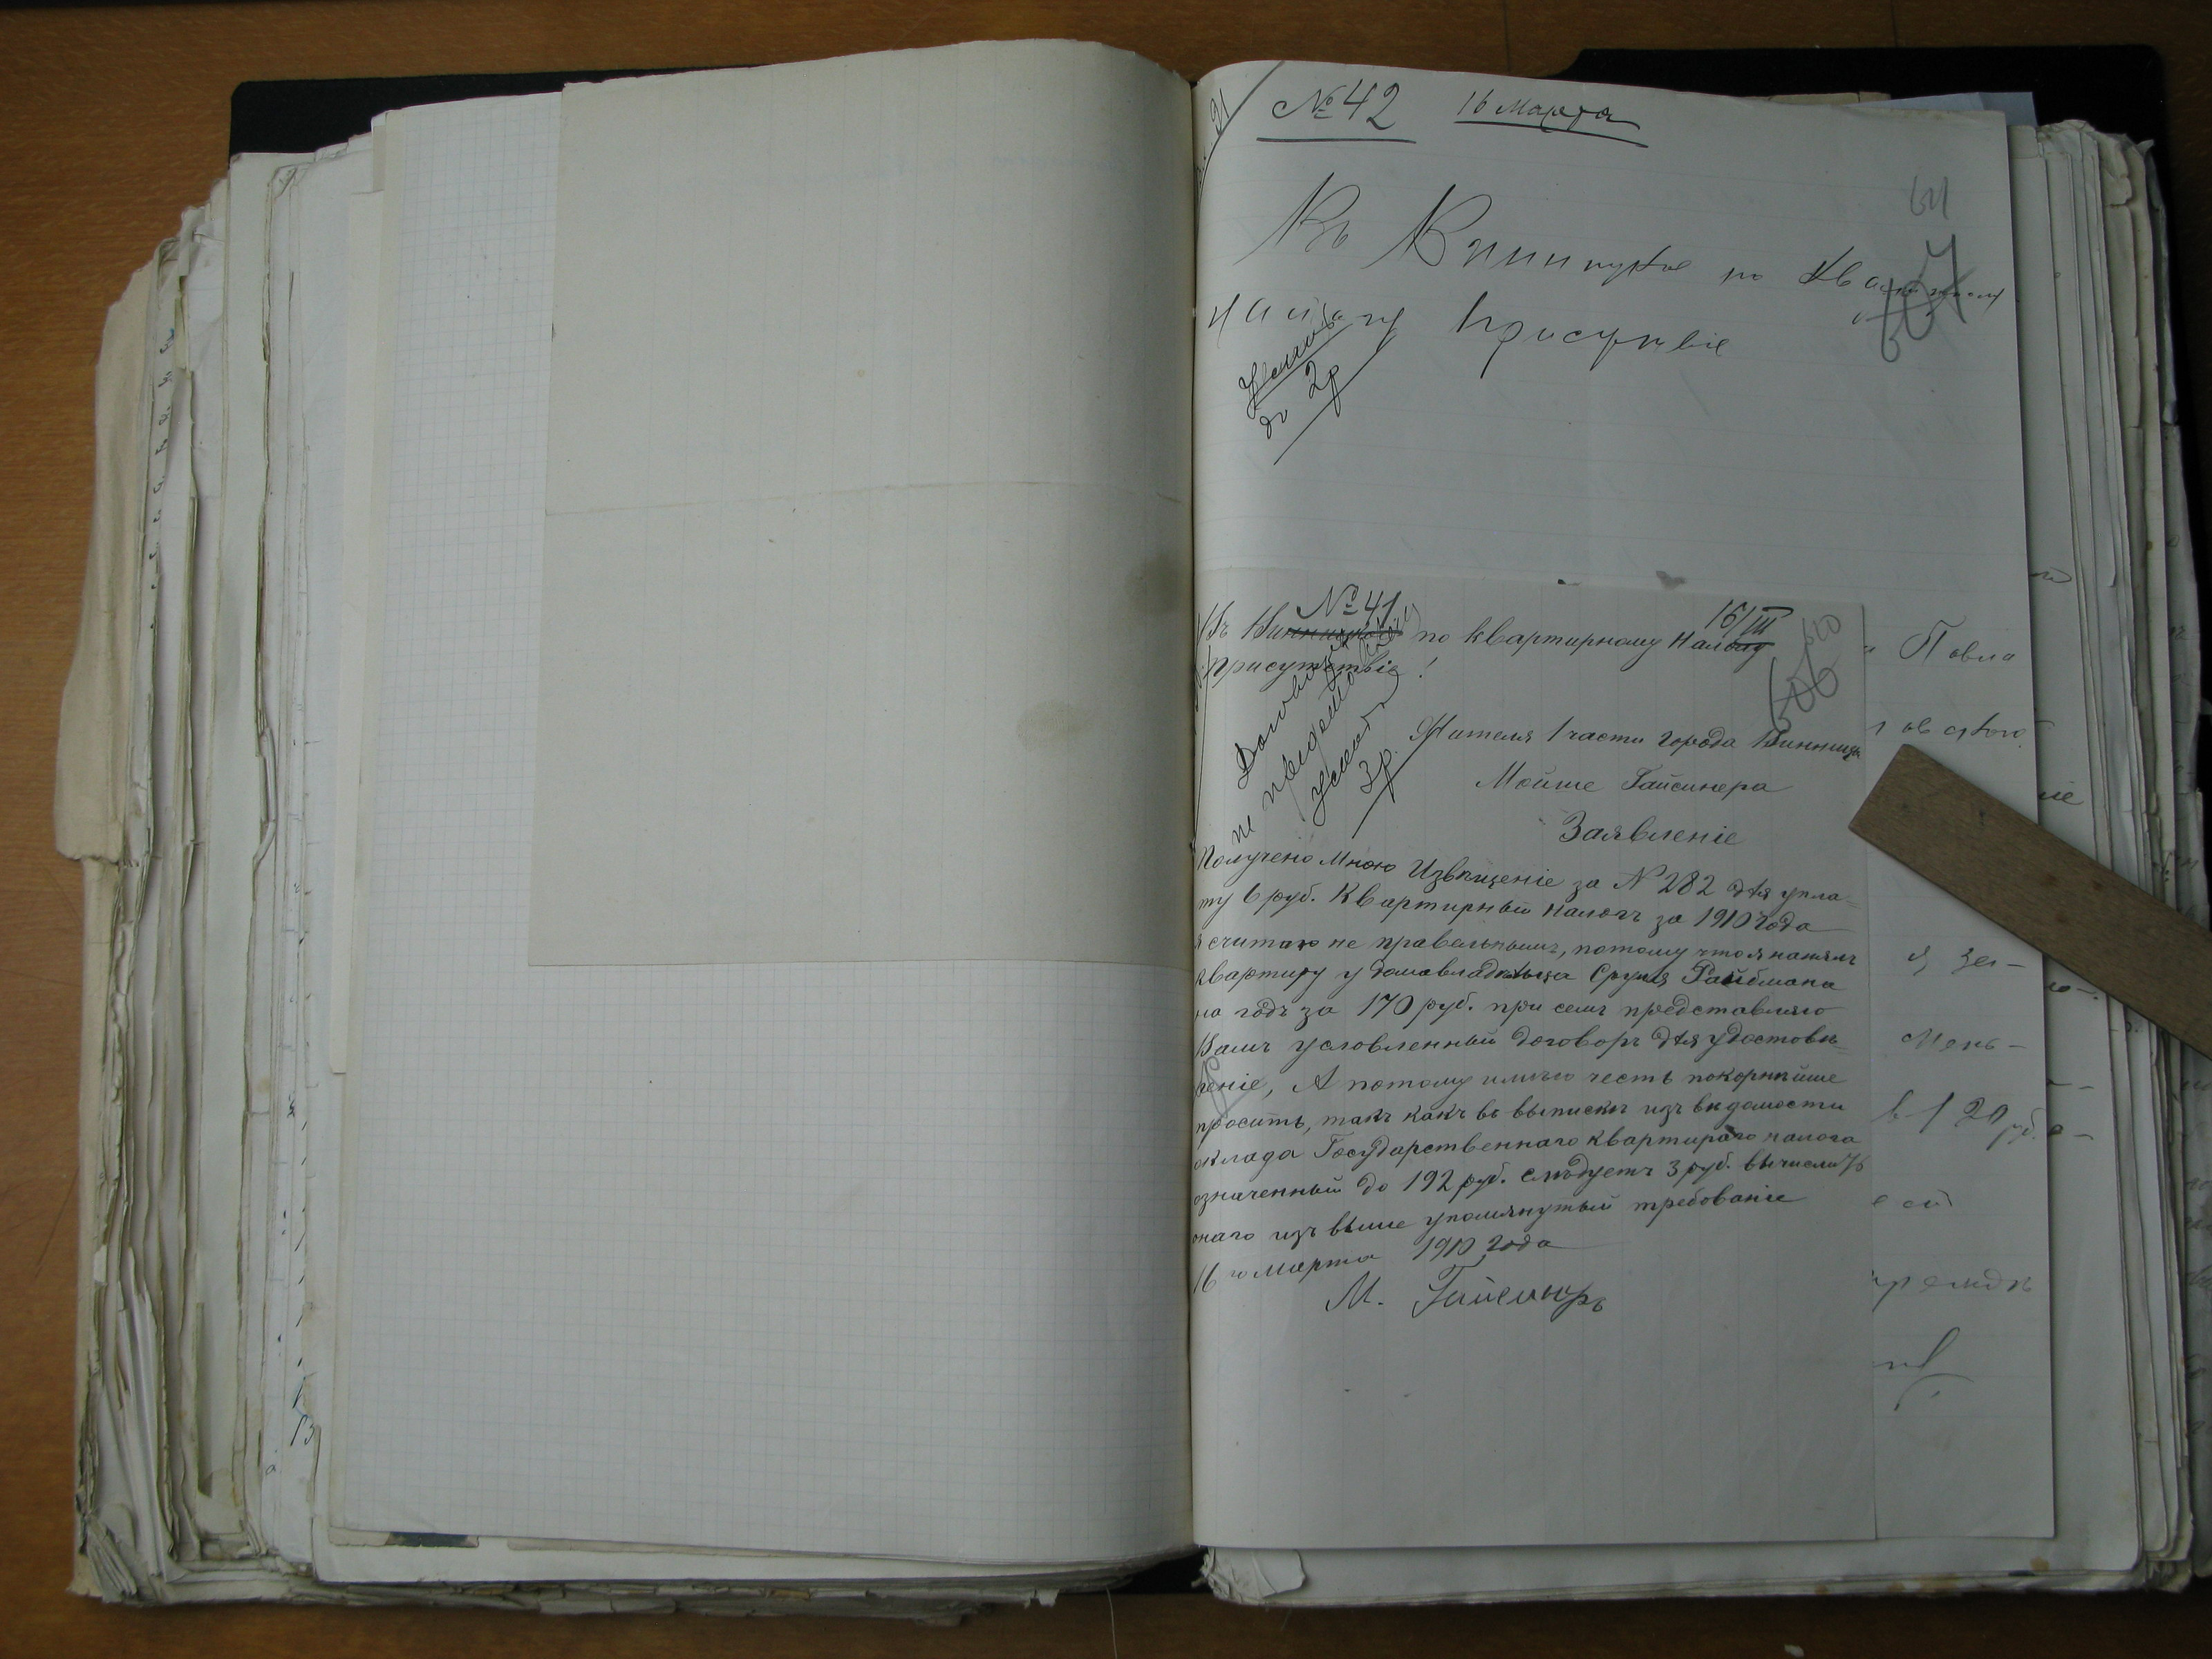 № 42 16 Марта
611
607
Въ Винницкое по Квартирному
налогу Присутствіе
до 2р
№ 41 16/III
Въ Винницкое по квартирному Налогу
Присутствіе!
610
606
Договоръ
не
3р.
Жителя 1 части города Винницы
Мойше Гайсинера
Заявленіе
Получено Мною Извѣщеніе за № 282 для упла-
ту 6 руб. Квартирный налогъ за 1910 года
я считаю не правельнымъ, потому что я нанялъ
квартиру у домовладѣльца Сруля Райбмана
на годъ за 170 руб. при семъ представляю
Вамъ условленный договоръ для удостовѣ-
реніе, А потому имѣю честь покорнѣйше
просить, такъ какъ во выписки изъ вѣдомости
оклада Государственнаго квартираго налога
означенный до 192 руб. слѣдуетъ 3 руб. вычислить
онаго изъ выше упомянутый требованіе
16 го Марта 1910 года
М. Гайсинеръ
Павла
я, зая-
Мень-
в 120 руб.